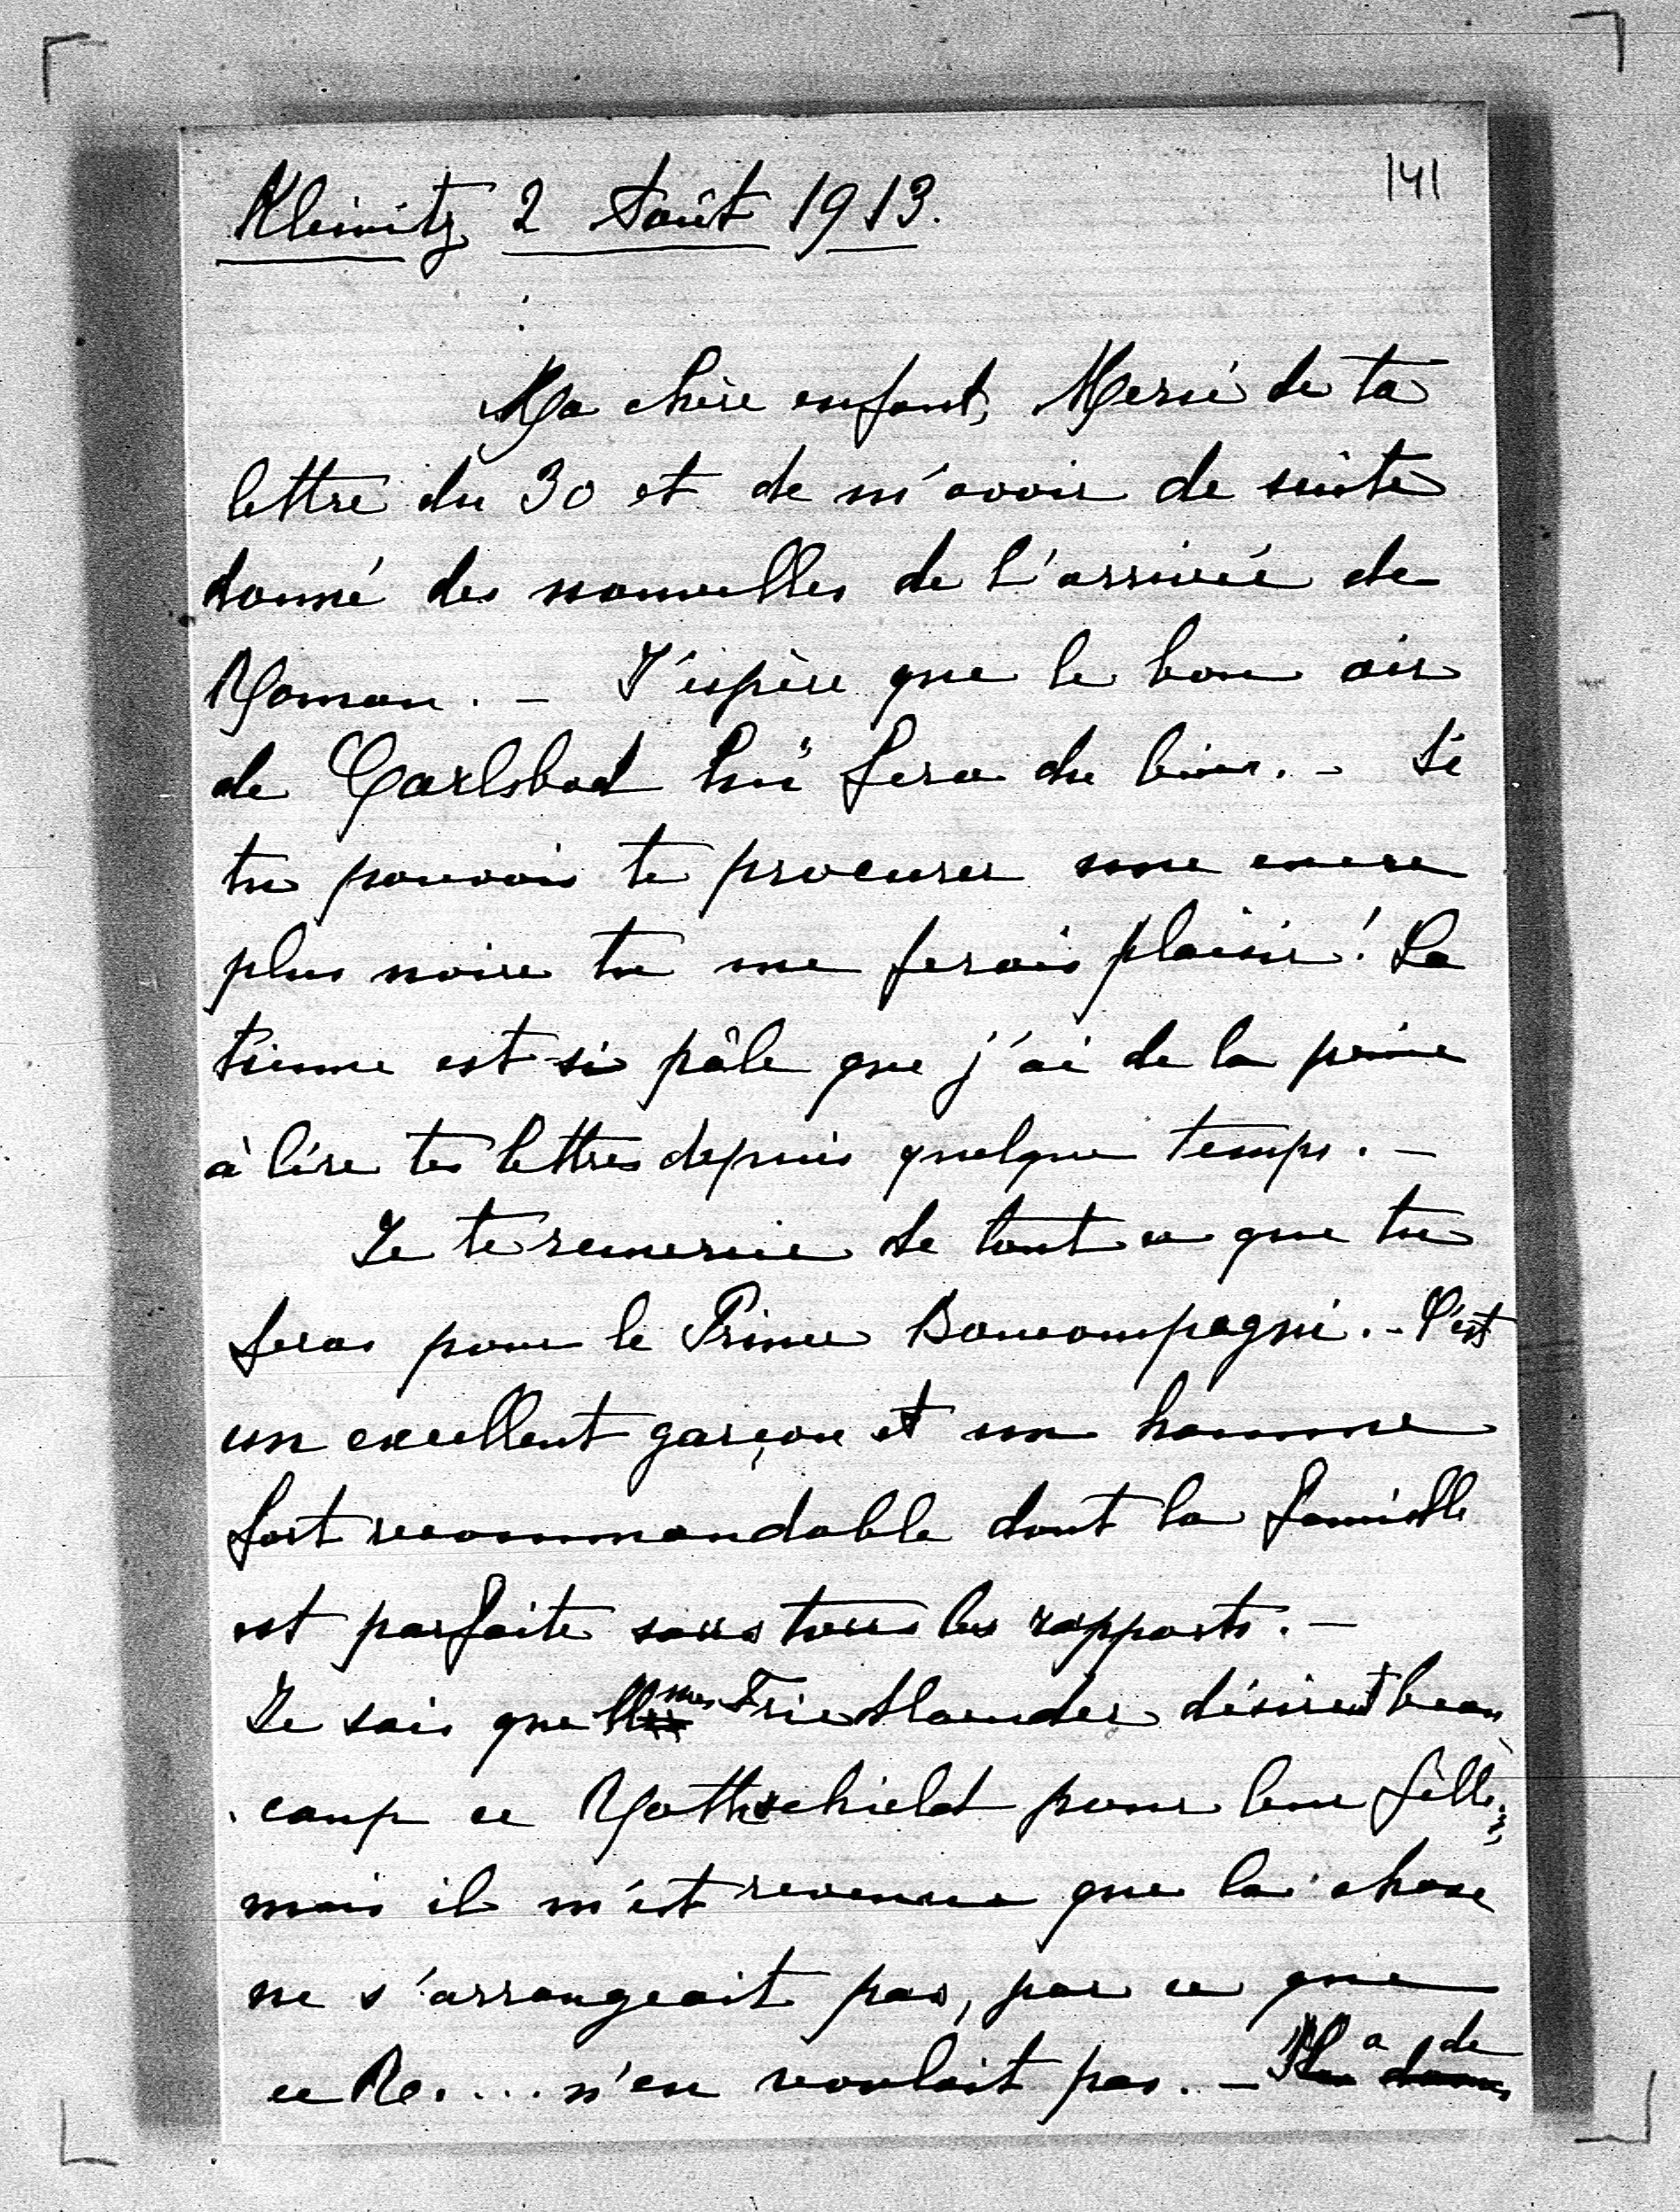 141
Kleinitz 2 Août 1913.
Ma chère enfant, Merci de ta
lettre du 30 et de m'avoir de suite
donné des nouvelles de l'arrivée de
Maman. – J'espère que le bon air
de Carlsbad lui fera du bien. – Si
tu pouvais te procurer une encre
plus noire tu me ferais plaisir! La
tienne est si pâle que j'ai de la peine
à lire tes lettres depuis quelque temps. –
Je te remercie de tout ce que tu
feras pour le Prince Boncompagni. – C'est
un excellent garçon et un homme
fort recommandable dont la famille
est parfaite sous tous les rapports. –
Je sais que les Friedlaender désirent beau
coup ce Rothschield pour leur fille;
mais il m'est revenu que la chose
ne s'arrangeait pas, par ce que
ce Ro.... n'en voulait pas. – Il a de